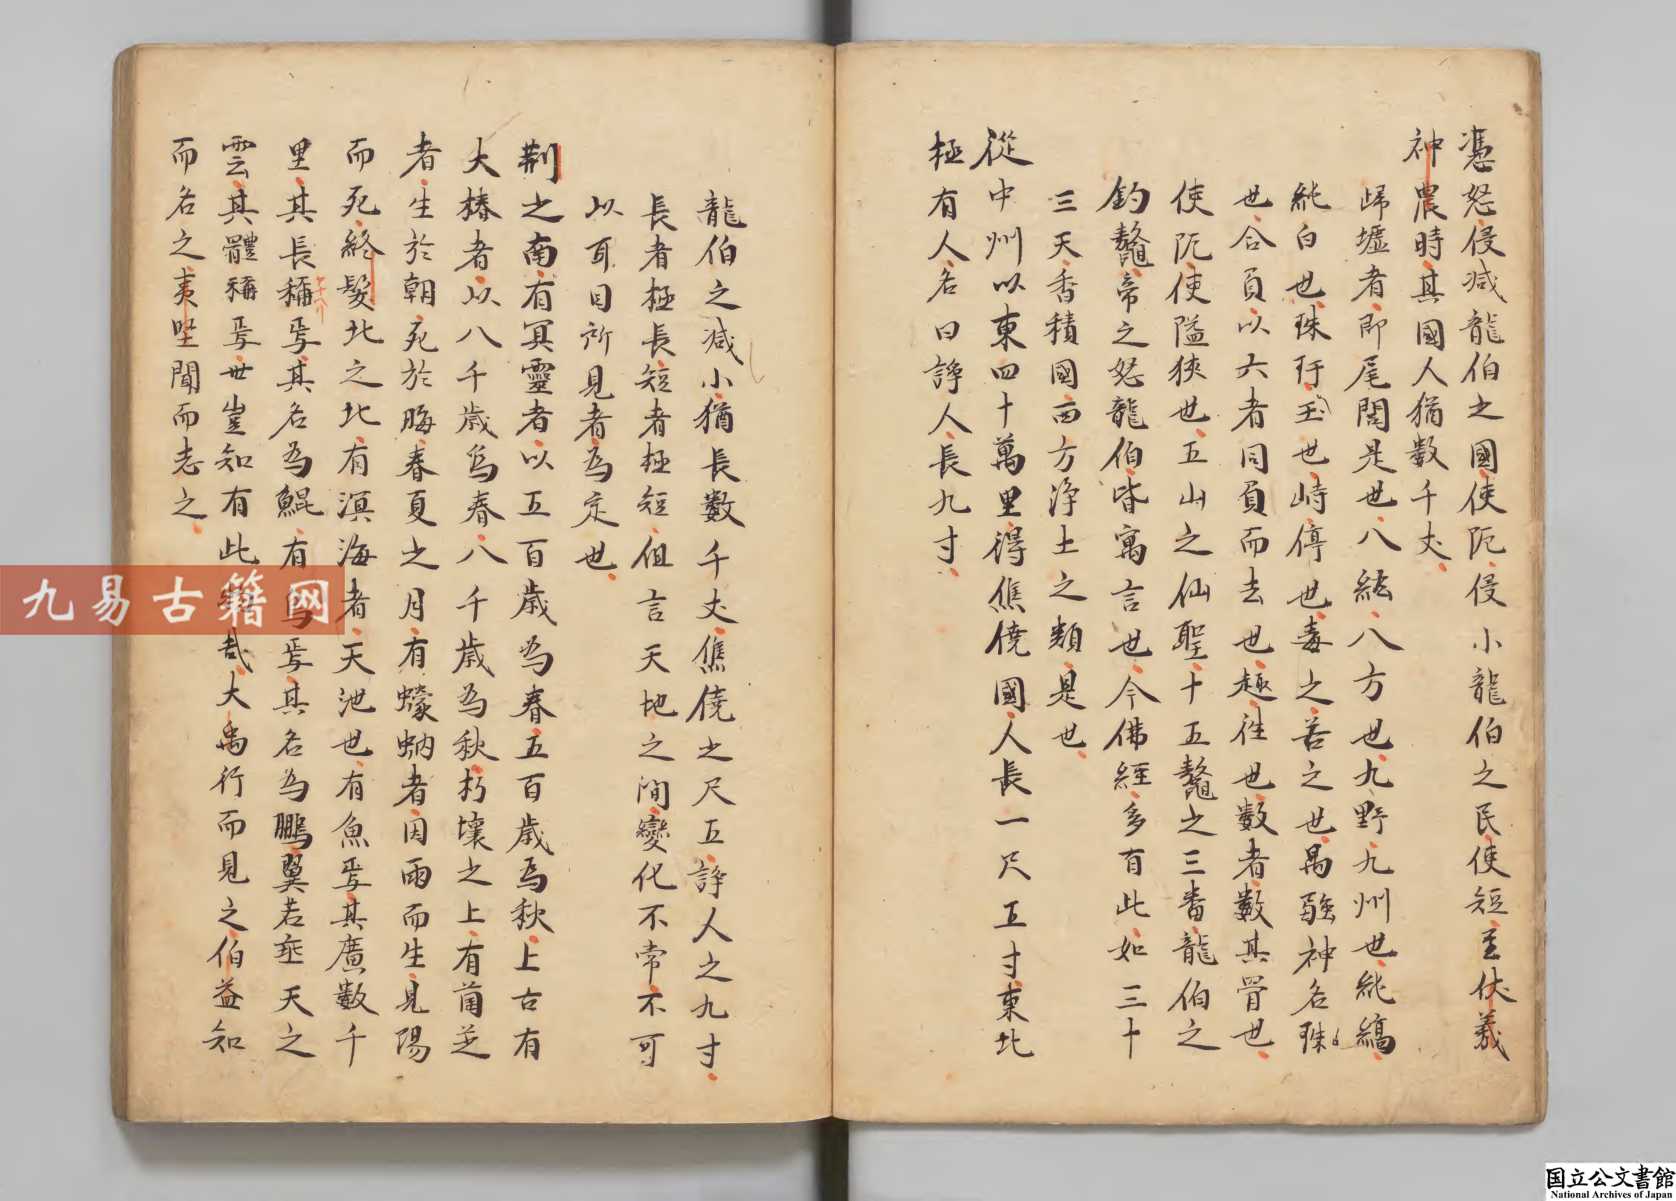 憑怒侵减龍伯之國使阨侵小龍伯之民使短至伏羲
神農時其國人猶數千丈
歸墟者即尾閭是也八紘八方也九野九州也純縞
純白也珠玕玉也峙停也毒之苦之也禺强神名珠
也合負以六者同負而去也趣往也數者數其骨也
使阨使隘狹也五山之仙聖十五鼇之三番龍伯之
釣鼇帝之怒龍伯皆寓言也今佛經多有此如三十
三天香積國西方淨土之類是也
從中州以東四十萬里得僬僥國人長一尺五寸東北
極有人名曰諍人長九寸
龍伯之减小猶長數千丈僬僥之尺五諍人之九寸
長者極長短者極短但言天地之間變化不常不可
以耳目所見者為定也
荆之南有冥靈者以五百歲為春五百歲為秋上古有
大椿者以八千歲為春八千歲為秋朽壤之上有菌芝
者生於朝死於晦春夏之月有蠓蚋者因雨而生見陽
而死終髮北之北有溟海者天池也有魚焉其廣數千
里其長稱焉其名為鯤有鳥焉其名為鵬翼若垂天之
雲其體稱焉世豈知有此物哉大禹行而見之伯益知
而名之夷堅聞而志之
九易古籍网
国立公文書館
National Archives of Japan